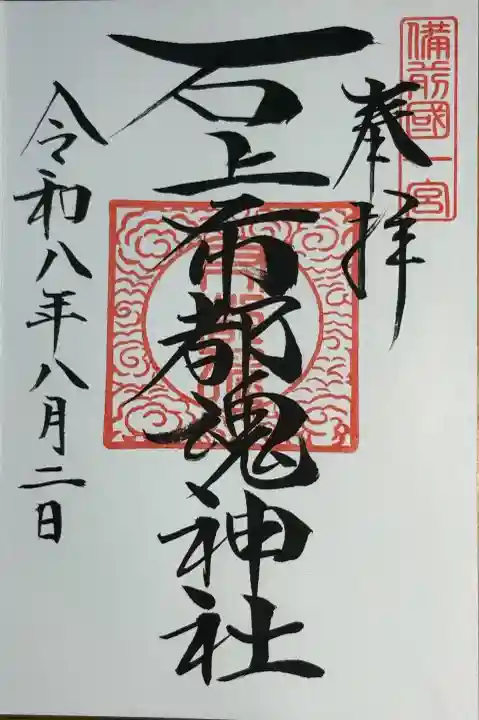 備前國一宮
奉拝
石上布都魂神社
令和八年八月二日